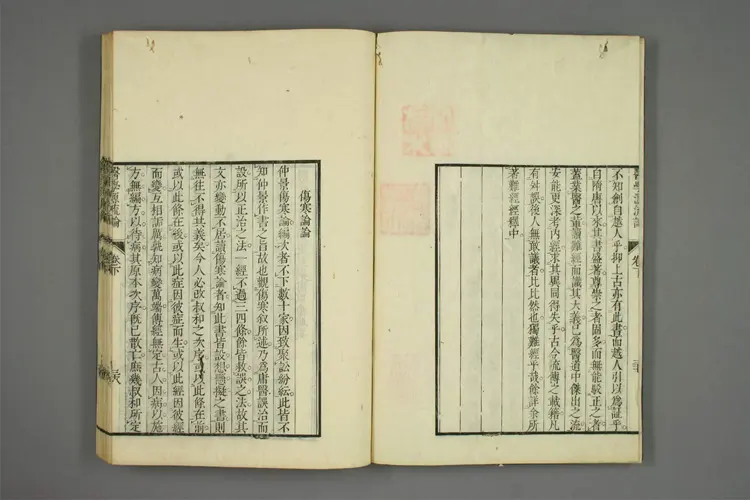 不知創自越人乎抑上古亦有此書而越人引以爲証乎
自隋唐以來其書盛著尊崇之者固多而無能駁正之者
蓋業醫之輩讀難經而識其大義已爲醫道中傑出之流
安能更深考內經求其異同得失乎古今流傳之載籍凡
有舛誤後人無敢議者比比然也獨難經乎哉餘詳余所
著難經經釋中
醫學源流論
卷下
傷寒論論
仲景傷寒論編次者不下數十家因致聚訟紛紜此皆不
知仲景作書之旨故也觀傷寒叙所述乃爲庸醫誤治而
設所以正治之法一經不過三四條餘皆救誤之法故其
文亦變動不居讀傷寒論者知此書皆設想懸擬之書則
無往不得其義矣今人必改叔和之次序或以此條在前
或以此條在後或以此症因彼症而生或以此經因彼經
而變互相詬厲孰知病變萬端傳經無定古人因病以施
方無編方以待病其原本次序既已散亡庶幾叔和所定
醫學源流論
卷下